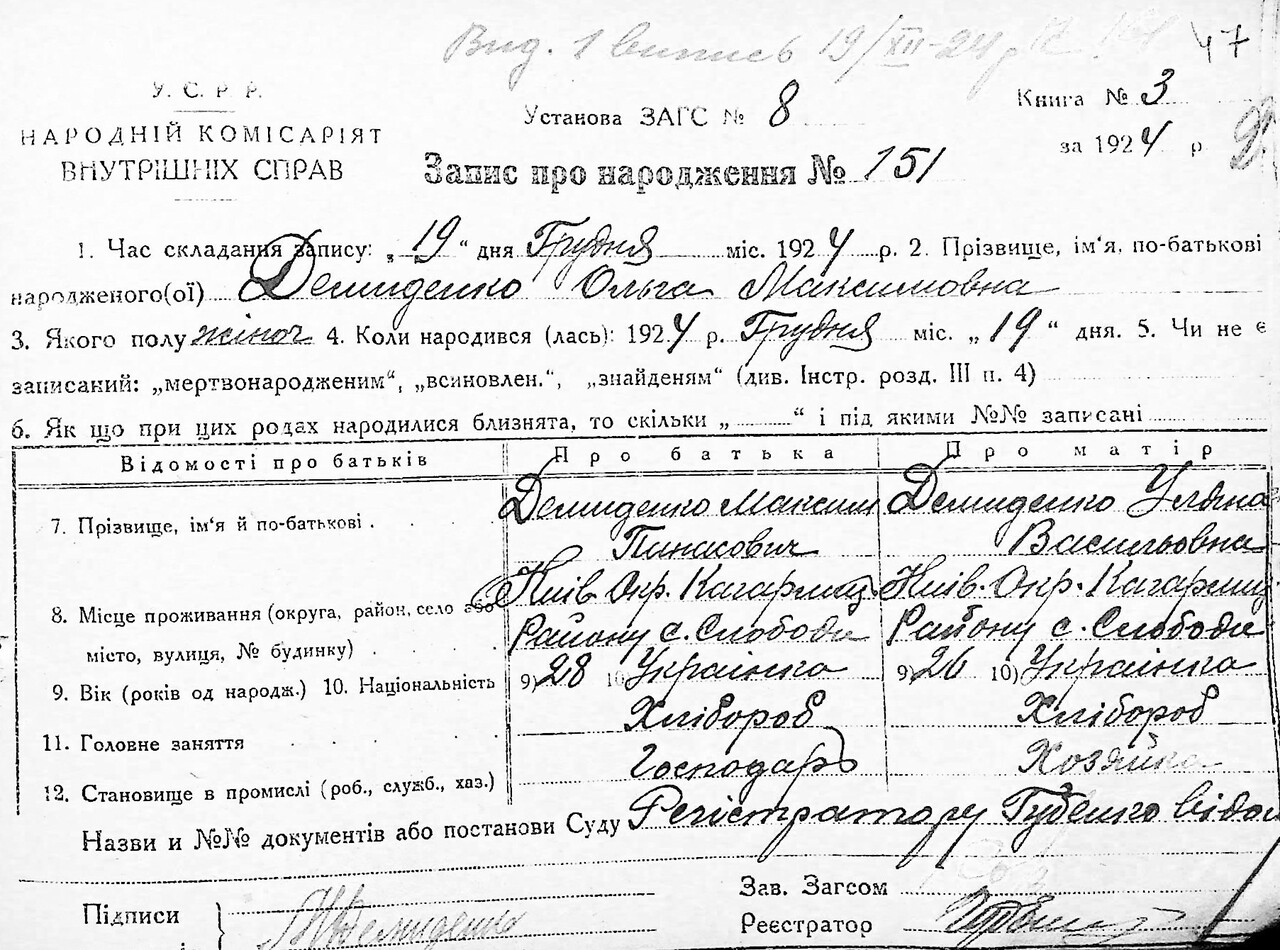 Вид. 1 витись 19/XII-24 р. 47
У. С. Р. Р.
НАРОДНІЙ КОМІСАРІЯТ
ВНУТРІШНІХ СПРАВ
Установа ЗАГС № 8
Книга № 3
за 1924 р.
Запис про народження № 151
1. Час складання запису: „19“ дня Грудня міс. 1924 р. 2. Прізвище, ім‘я, по-батькові
народженого(ої) Демиденко Ольга Максимовна
3. Якого полу жіноч 4. Коли народився (лась): 1924 р. Грудня міс. „19“ дня. 5. Чи не є
записаний: „мертвонародженим“, „всиновлен.“, „знайденям“ (див. Інстр. розд. III п. 4)
6. Як що при цих родах народилися близнята, то скільки „ “ і під якими №№ записані
Відомості про батьків Про батька Про матір
7. Прізвище, ім‘я й по-батькові . Демиденко Максим Демиденко Уляна
Панасович Васильовна
8. Місце проживання (округа, район, село або Київ. Окр. Кагарлиц. Київ. Окр. Кагарлиц
місто, вулиця, № будинку) Району с. Слободи Району с. Слободи
9. Вік (років од народж.) 10. Національність 9) 28 10) Українка 9) 26 10) Українка
11. Головне заняття Хлібороб Хлібороб
12. Становище в промислі (роб., служб., хаз.) Господарь Хозяйка
Назви и №№ документів або постанови Суду Регістратору Губенко відом
Зав. Загсом
Підписи МДемиденко
Реєстратор